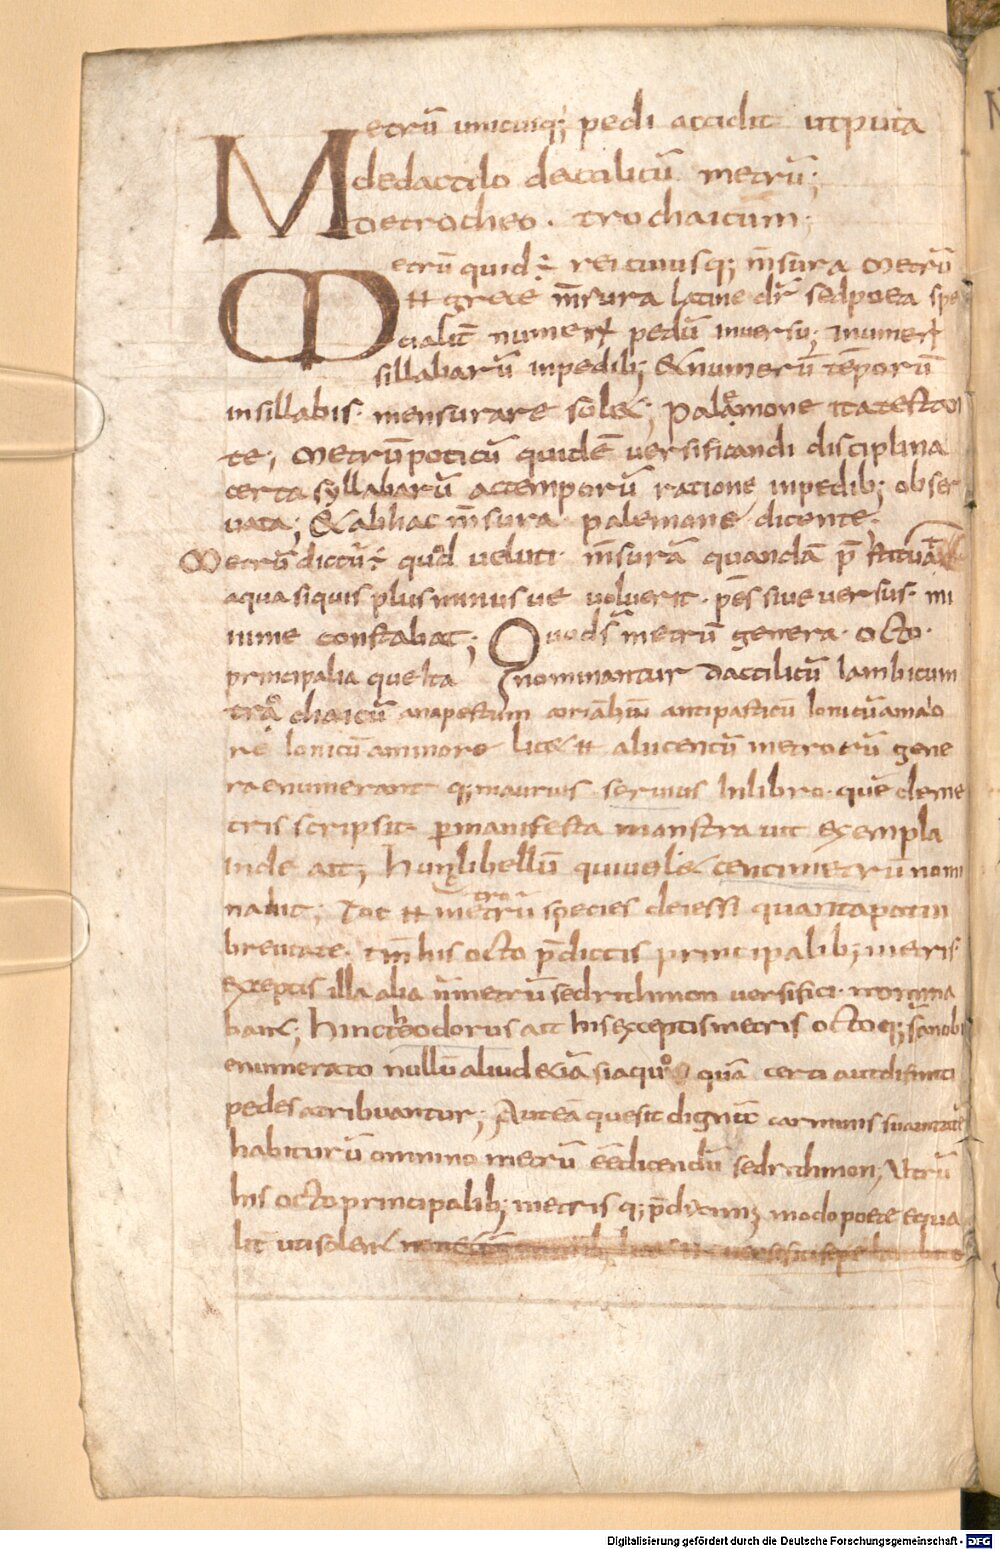 Metrū unicuiq; pedi accidit utputa
dedactilo dactilicū metrū;
Detrocheo. trochaicum;
Metrū quid ē rei cuiusq; m̄sura Metrū
grece m̄sura latine dr̄ sedpoeta spe
cialit̄ numerꝝ pedū inversu; numerꝝ
sillabarū inpedib; &numerū tēporū
insillabis. mensurare sol&; Palęmone itatestan
te; Metrūpoticū quidē versificandi disciplina
certa syllabarū actemporū ratione inpedib; obser
vata; &abhac m̄sura palemone dicente.
Metrū dictū ē quod veluti m̄surā quandā
aqua siquis plus minus ve volverit. pēs sive versus. mi
nime constabat; Quod s̄ metrū genera. octo.
principalia que Ita nominantur Dactilicū Iambicum
trochaicū anapestum antipasticū Ionicū amaio
re Ionicū aminore lic& alii centū metrorū gene
ra enumerant q; maurus servius Inlibro. quē deme
tris scripsit permanifesta monstravit exempla
Inde ait; Hunc libellū quivel& centimetrū nomi
navit; Tot metrorū species deiessi quantapotui
brevitate. his octo p̄dictis principalib; metris.
exceptis illa alia metrū sedrithmon versifici. nomina
bant; Hinc theodorus ait his exceptis metris octo q; nobis
enumerato nullū aliud &iā siaquo quā certi autdifiniti
pedes atribuantur; Auteā quesit dignū carminis suavitatē
habiturū omnino metrū eē dicendū sedrithmon; Utrū
his octo principalib; metris q; p̄diximus modo poete equa
lit̄ uti solent
Digitalisierung gefördert durch die Deutsche Forschungsgemeinschaft - DFG